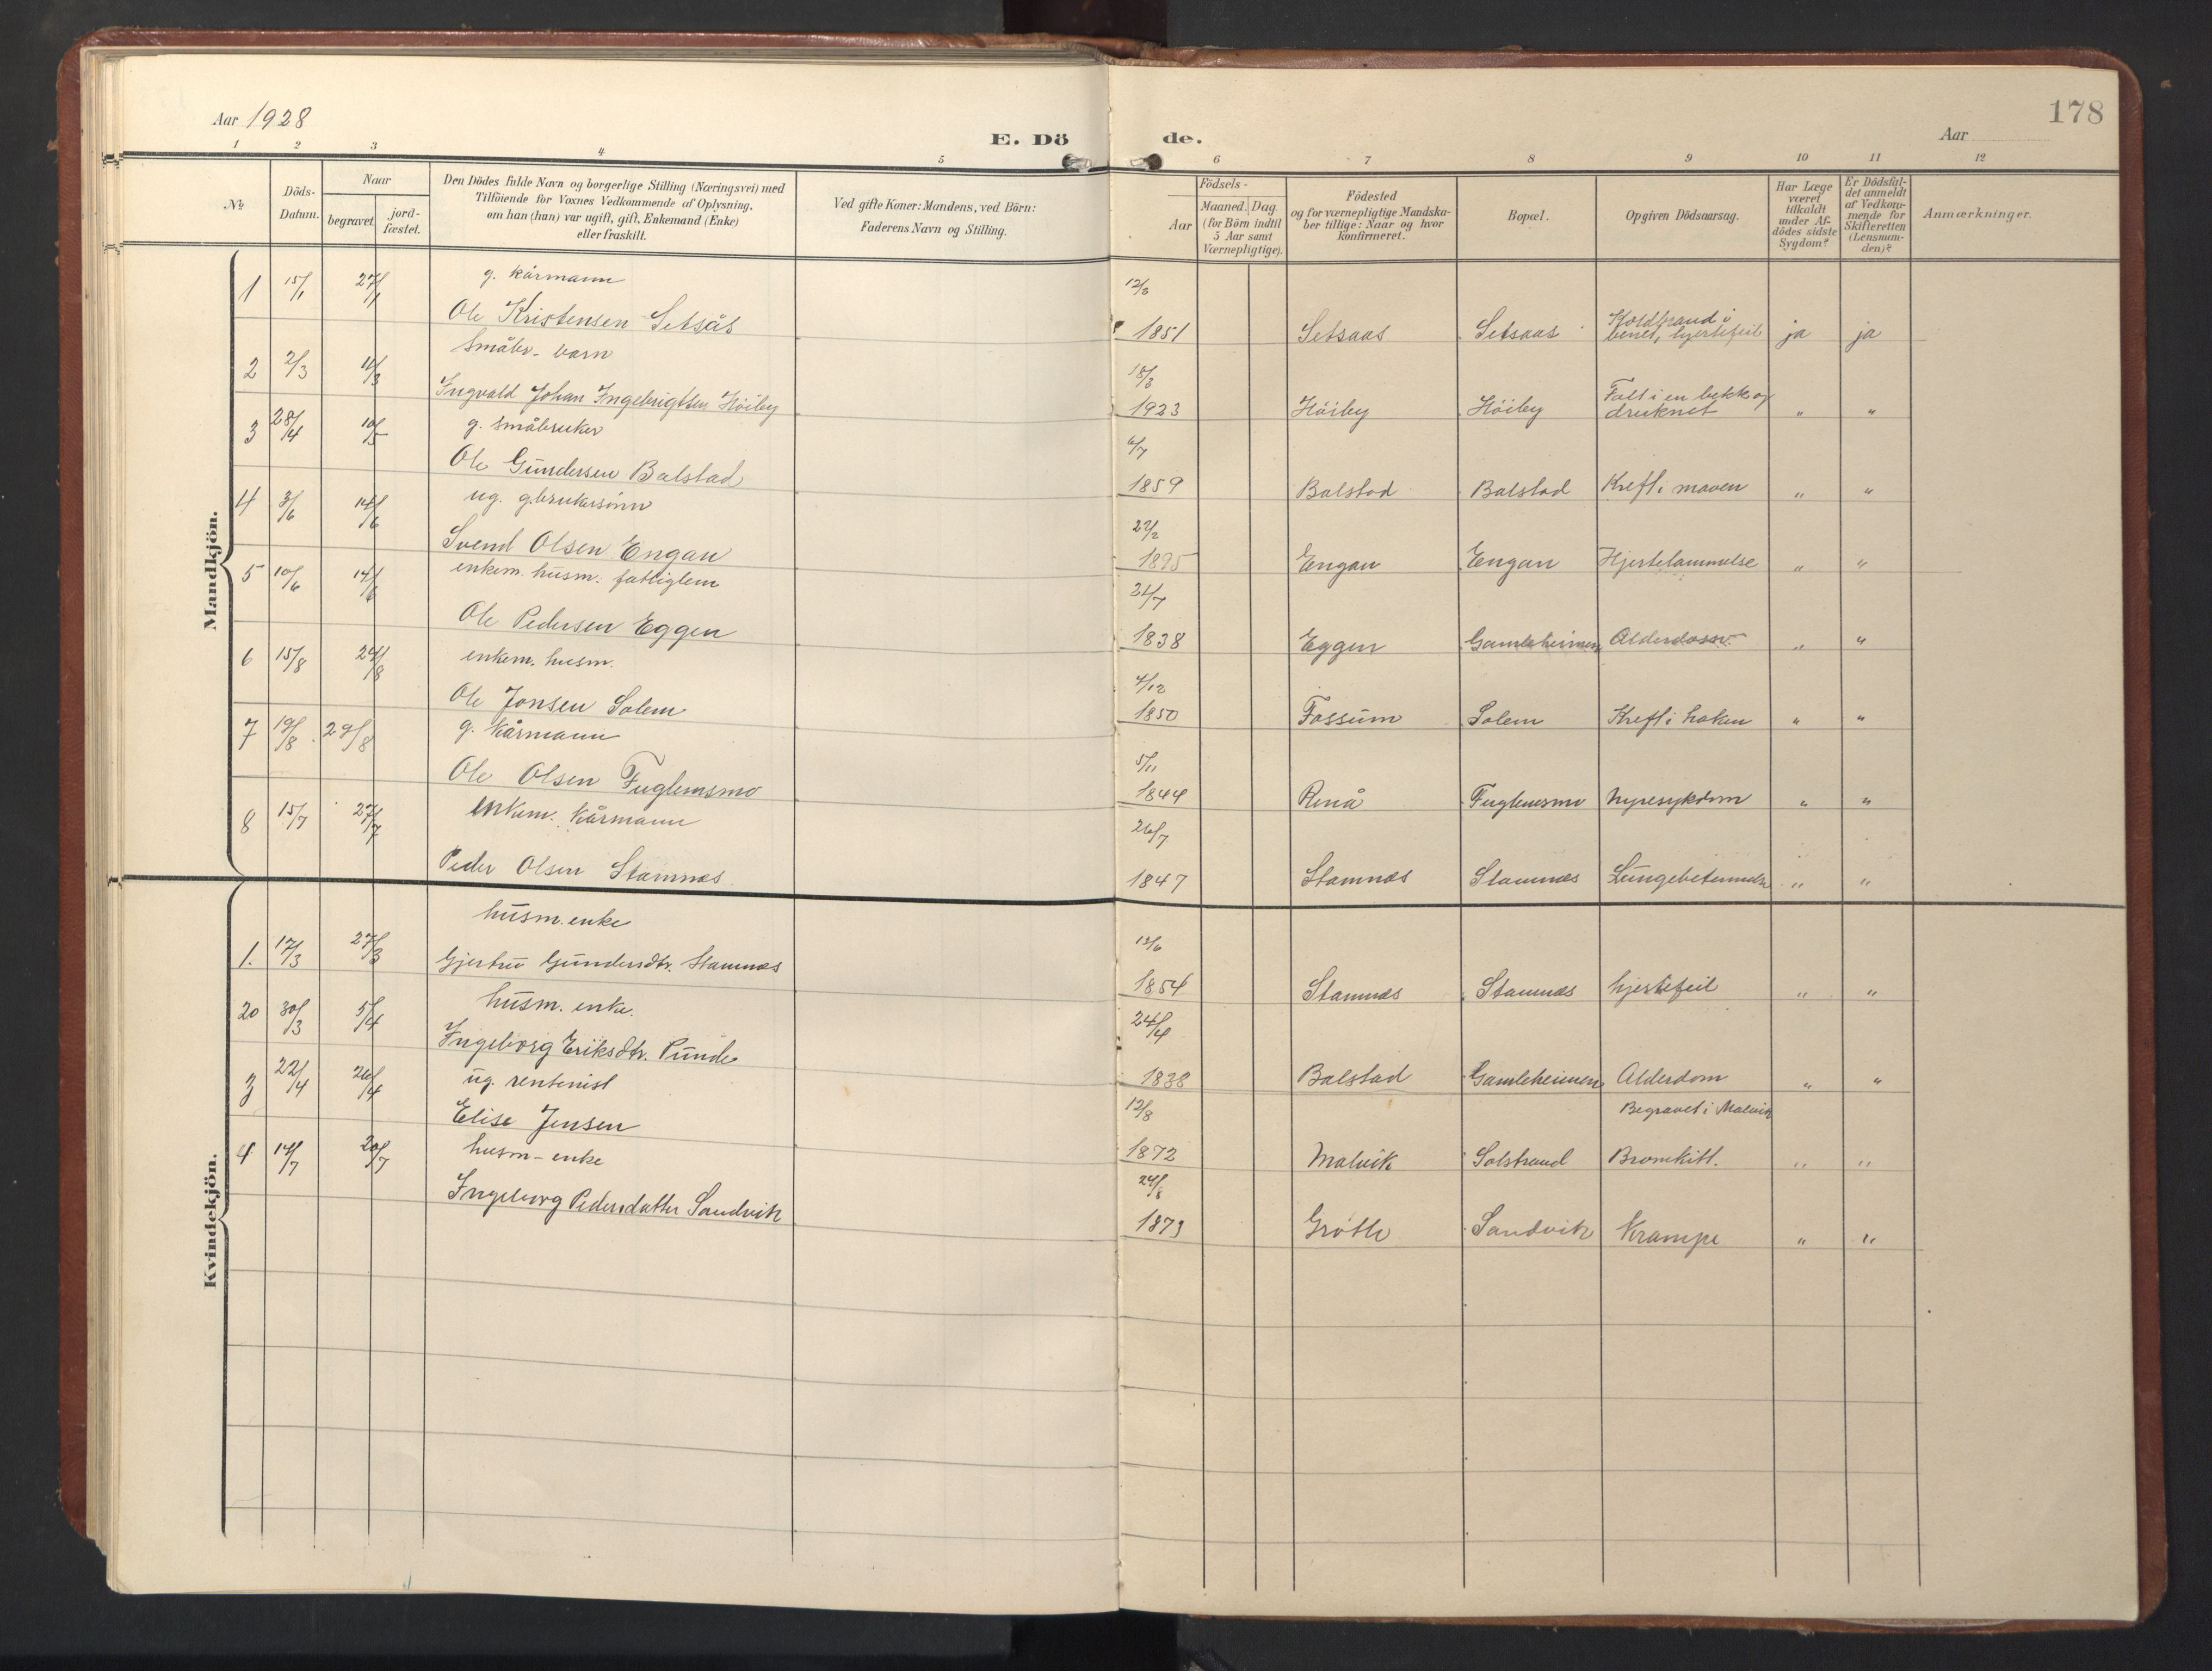 178
Aar 1928
E. Dö de.
Aar
1 2 3 4 5 6 7 8 9 10 11 12
№
Döds-
Datum.
Naar
begravet.
jord-
fæstet.
Den Dödes fulde Navn og borgerlige Stilling (Næringsvei) med
Tilföiende for Voxnes Vedkommende af Oplysning,
om han (hun) var ugift, gift, Enkemand (Enke)
eller fraskilt.
Ved gifte Koner: Mandens, ved Börn:
Faderens Navn og Stilling.
Födsels-
Aar
Maaned. Dag.
(for Börn indtil
5 Aar samt
Værnepligtige).
Födested
og for værnepligtige Mandska-
ber tillige: Naar og hvor
konfirmeret.
Bopæl.
Opgiven Dödsaarsag.
Har Læge
været
tilkaldt
under Af-
dödes sidste
Sygdom?
Er Dödsfal-
det anmeldt
af Vedkom-
mende for
Skifteretten
(Lensman-
den)?
Anmærkninger.
Mandkjön.
1 15/1 27/1 g. kårmann 12/3
Ole Kristensen Setsås 1851 Setsaas Setsaas Koldbrand i
benet, hjertefeil ja ja
2 2/3 11/3 småbr. barn 18/3
Ingvald Johan Ingebrigtsen Höiby 1923 Höiby Höiby Falt i en bekk og
druknet " "
3 28/4 10/5 g. småbruker 6/7
Ole Gundersen Balstad 1859 Balstad Balstad Kreft i maven " "
4 3/6 14/6 ug. g.brukersönn 27/2
Svend Olsen Engan 1895 Engan Engan Hjertelammelse " "
5 10/6 14/6 enkem. husm. fattiglem 21/7
Ole Pedersen Eggen 1838 Eggen Gamleheimen Alderdom " "
6 15/8 24/8 enkem. husm. 4/12
Ole Jonsen Solem 1850 Fossum Solem Kreft i haken " "
7 19/8 29/8 g. kårmann 5/11
Ole Olsen Fuglemsmo 1844 Renå Fuglemsmo Nyresykdom " "
8 15/7 27/7 enkem. kårmann 26/7
Peder Olsen Stamnes 1847 Stamnæs Stamnæs Lungebetennelse " "
Kvindekjön.
1. 17/3 27/3 husm. enke 13/6
Gjertru Gundersdtr. Stamnæs 1854 Stamnæs Stamnæs hjertefeil " "
20 30/3 5/4 husm. enke. 24/4
Ingeborg Eriksdtr. Punde 1838 Balstad Gamleheimen Alderdom " "
3 22/4 26/4 ug. rentenist 12/8 Begravet i Malvik
Elise Jensen 1872 Malvik Solstrand Bronkitt. " "
4 14/7 20/7 husm-enke 24/8
Ingeborg Pedersdatter Sandvik 1873 Grötte Sandvik Krampe " "